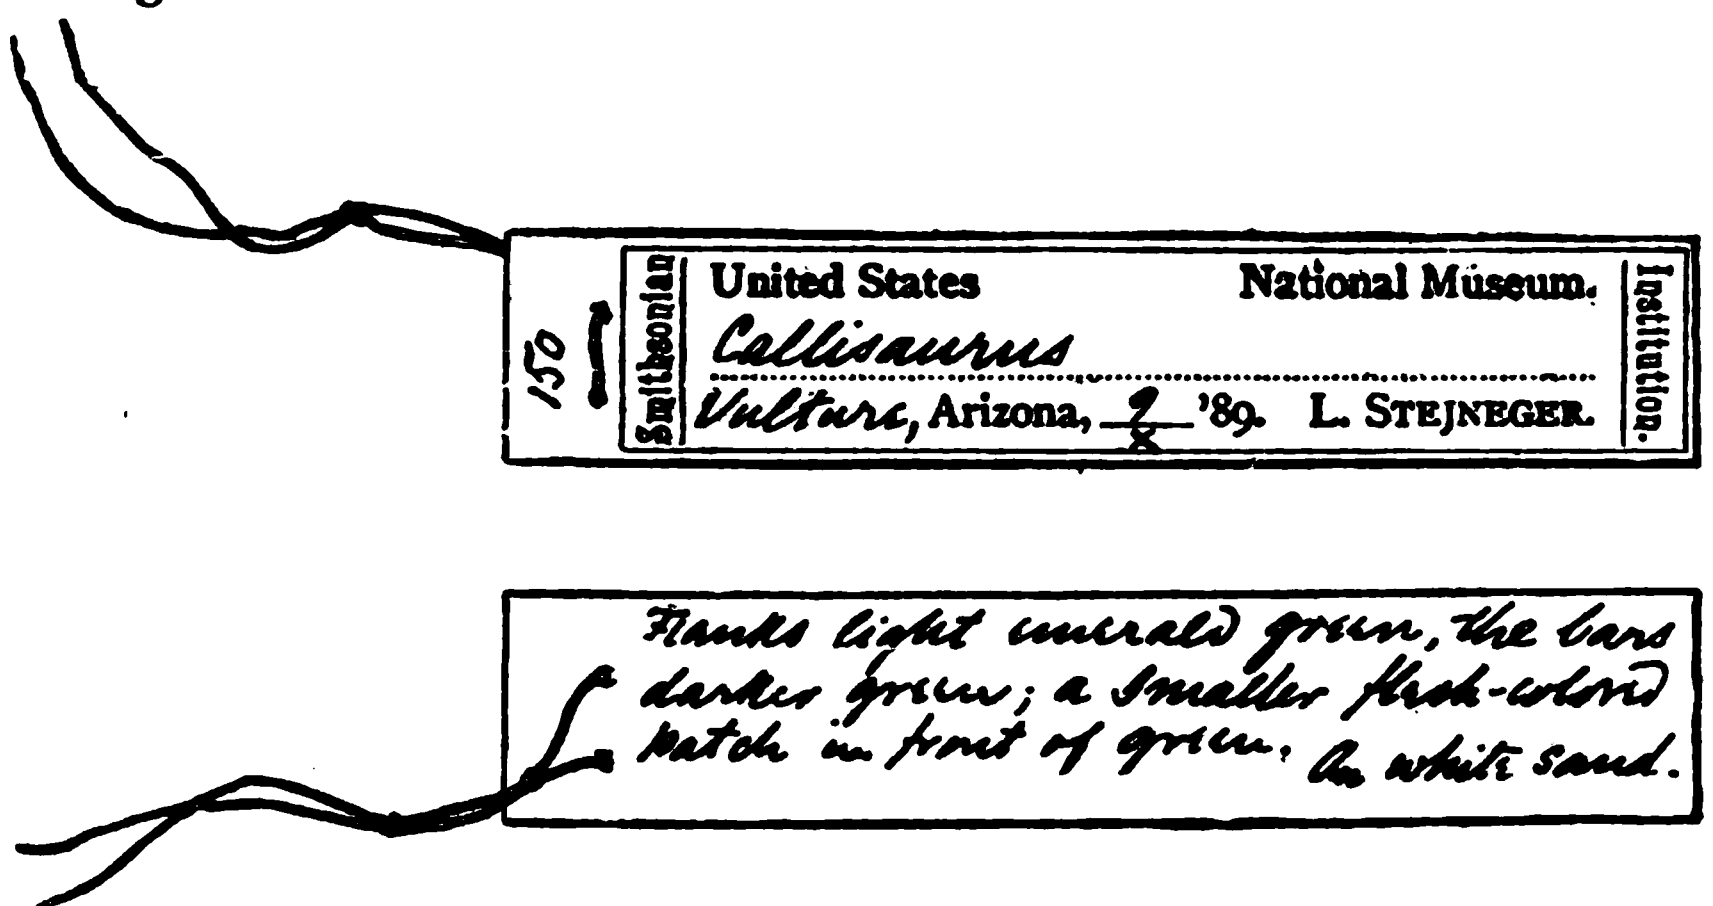 150
Smithsonian
United States National Museum.
Callisaurus
Vulture, Arizona, 9/X '89. L. STEJNEGER.
Institution.
Flanks light emerald green, the bars
darker green; a smaller flesh-colored
patch in front of green. On white sand.